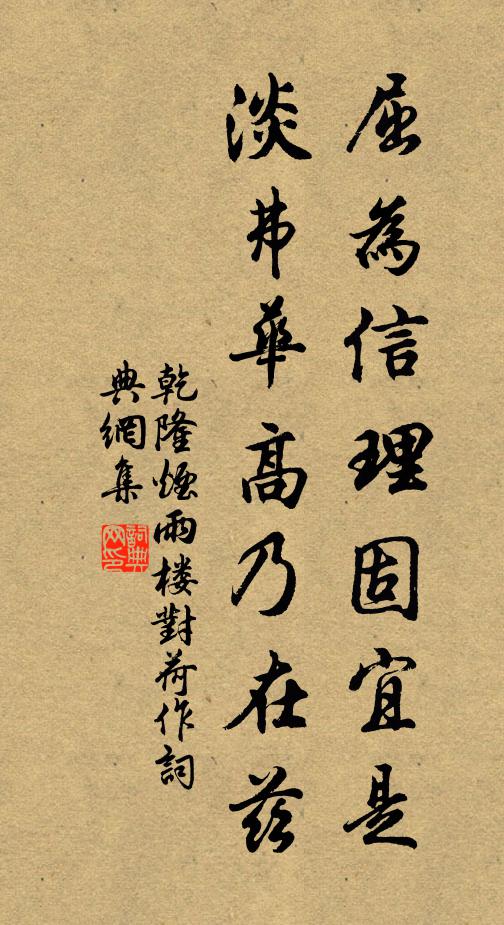 屈為信理固宜是
淡弗華高乃在茲
乾隆煙雨樓對荷作詞
典網集
詞典网印